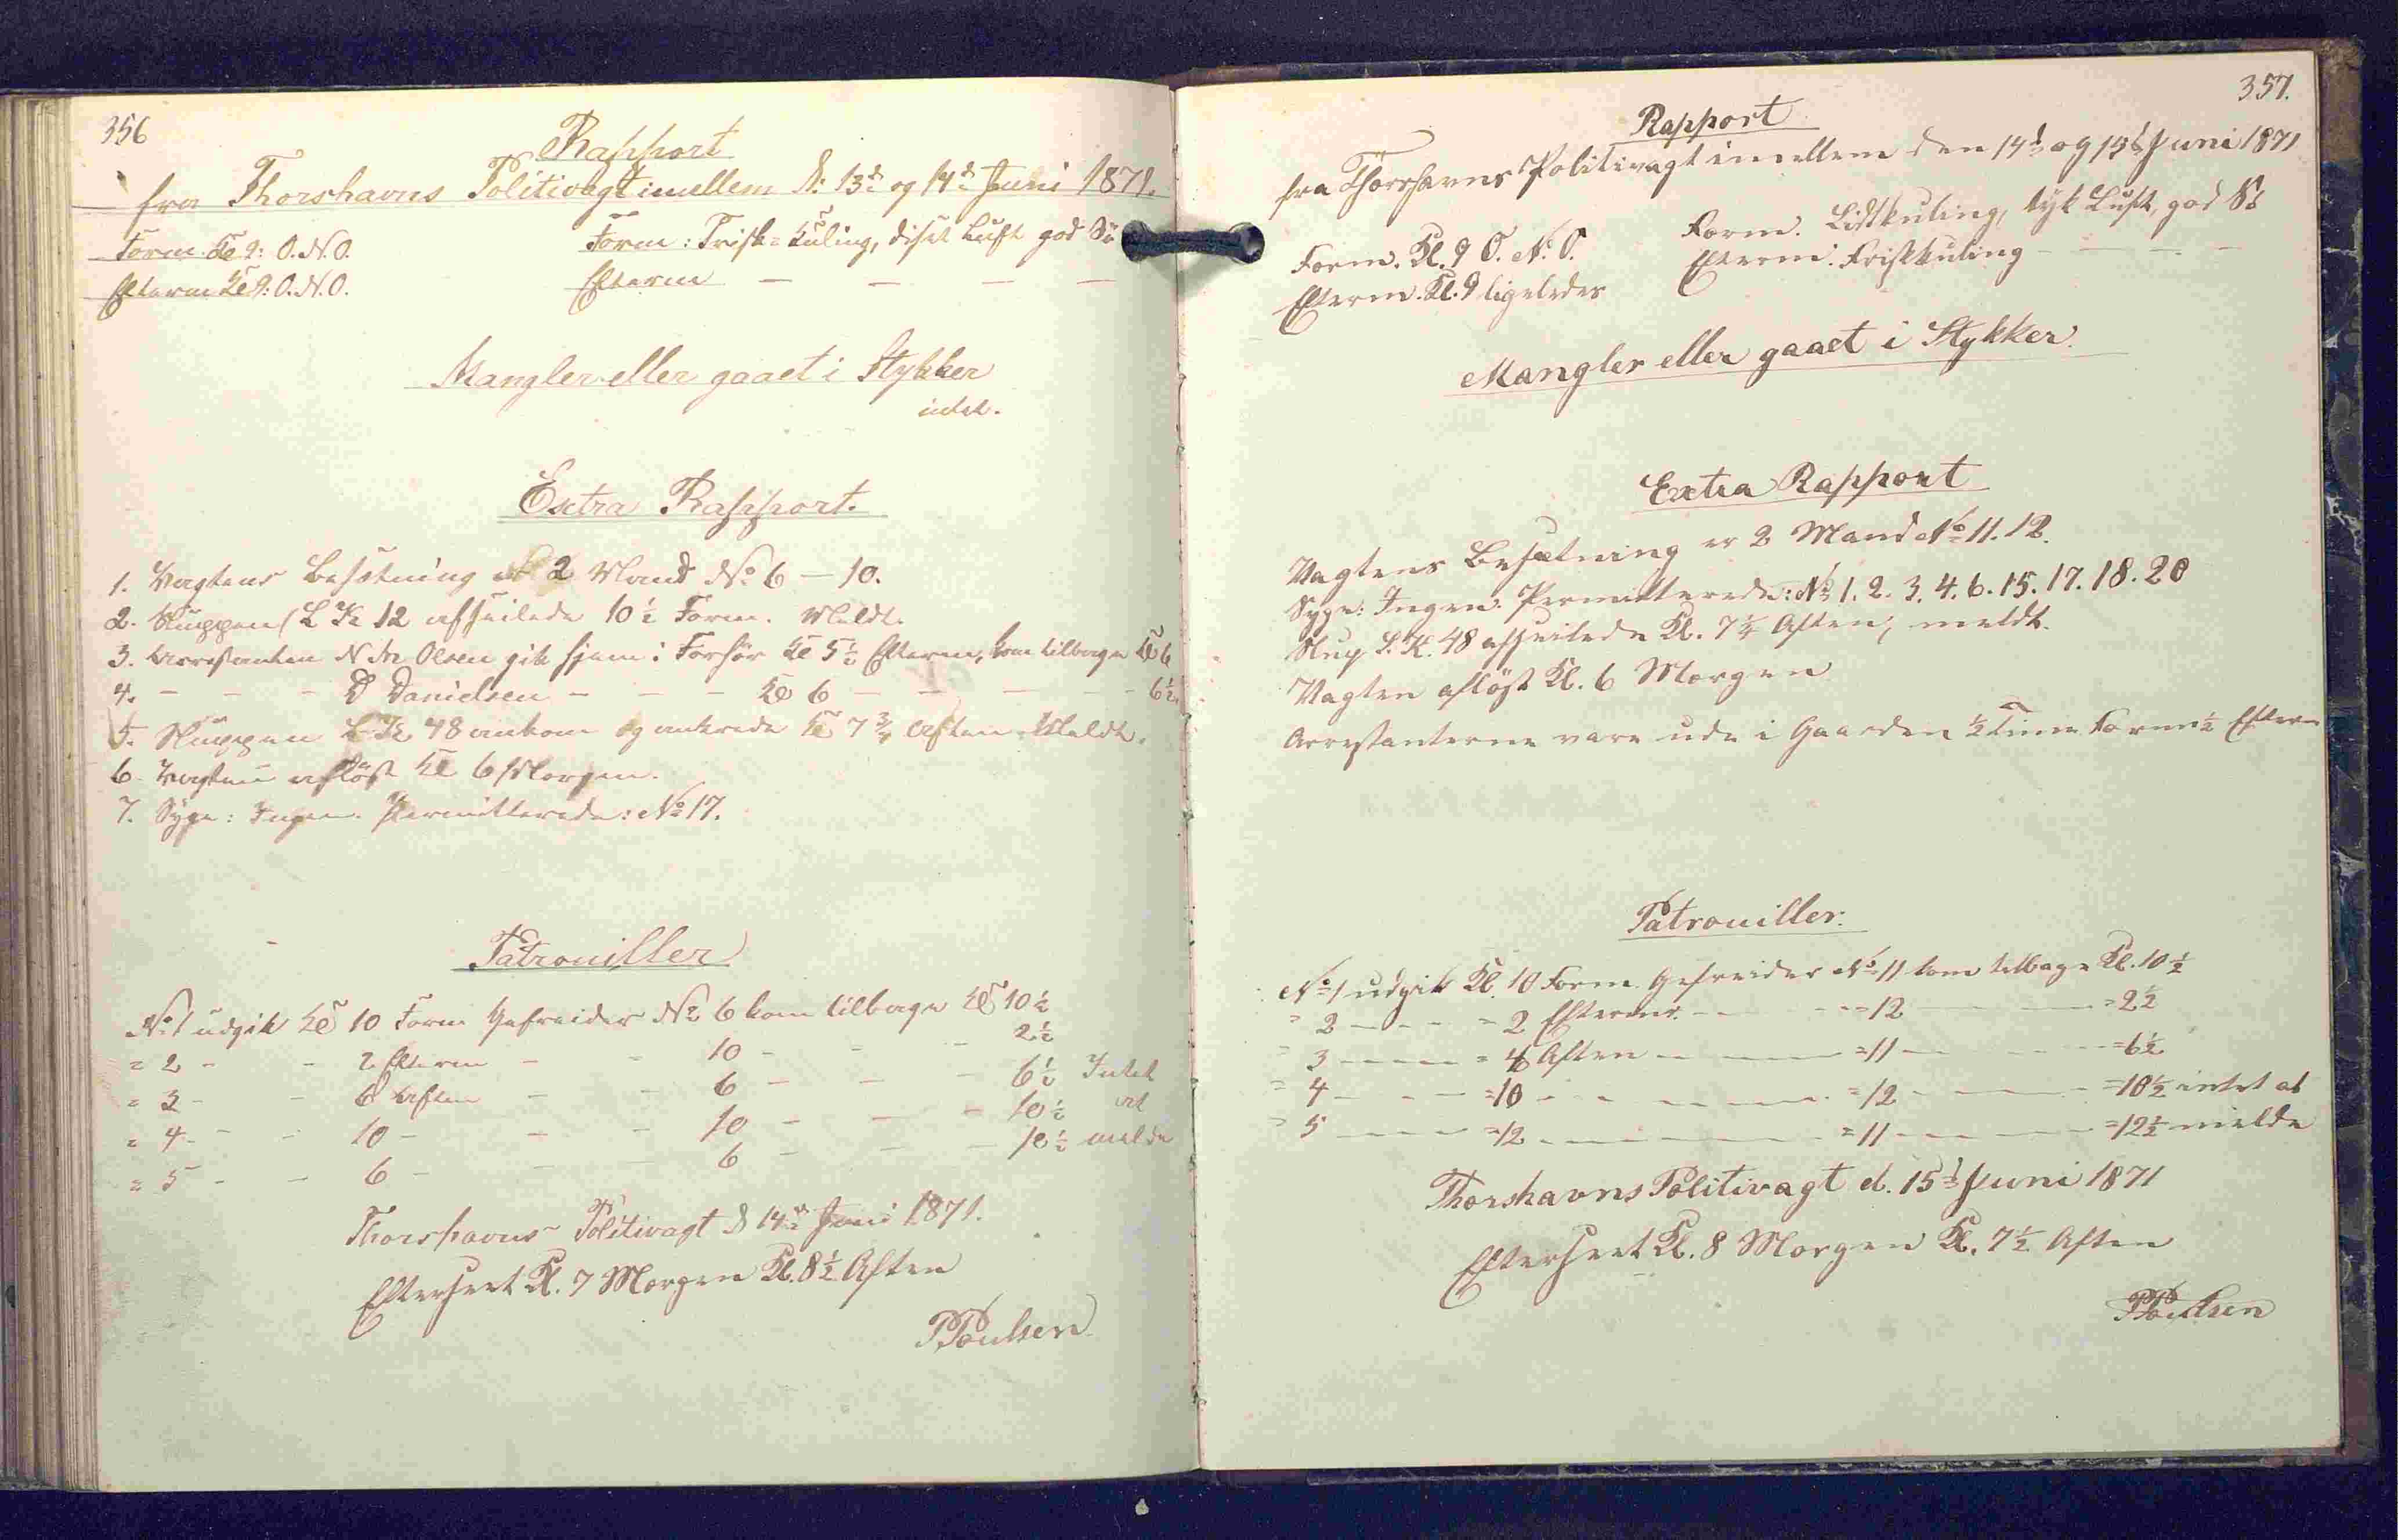 356
Rapport
fra Thorshavns Politivagt imellem d: 13de og 14de Juni 1871.
Form. Kl 9: O.N.O. Form: Frisk=Kuling, diset Luft god Sö
Efterm Kl 9: O.N.O. Efterm — — — —
Mangler eller gaaet i Stykker
intet.
Extra Rapport.
1. Vagtens Besætning er 2 Mand No 6 — 10.
2. Sluppen L K 12 afseilede 10 ½ Form. Meldt.
3. Arrestanten N Olsen gik hjem i Forhör Kl 5 ½ Efterm, kom tilbage Kl 6
4. — — — D Danielsen — — — Kl 6 — — — — 6 ½
5. Sluppen L K 48 ankom og ankrede Kl 7 ¾ Aften. Meldt.
6. Vagten aflöst Kl 6 Morgen.
7. Syge: Ingen. Permitterede: No 17.
Patrouiller
No 1 udgik Kl 10 Form Gefreider No 6 kom tilbage Kl 10 ½
= 2 - - 2 Efterm - - 10 - - - 2 ½
= 3 - - 6 Aften - - 6 - - - 6 ½ Intet
= 4 - - 10 - - - 10 - - - 10 ½ at
= 5 - - 6 - - - 6 - - - 10 ½ melde
Thorshavns Politivagt d 14de Juni 1871.
Efterseet Kl. 7 Morgen Kl. 8 ½ Aften
PPoulsen
357.
Rapport
fra Thorshavns Politivagt imellem den 14d og 15d Juni 1871
Form. Kl. 9 O. N. O. Form. Lidtkuling, tyk Luft, god Sö
Efterm. Kl. 9 ligeledes Efterm. Friskkuling - - - -
Mangler eller gaaet i Stykker
Extra Rapport
Vagtens Besætning er 2 Mand No 11. 12.
Syge: Ingen. Permitterede: No 1. 2. 3. 4. 6. 15. 17. 18. 20
Slup L. K. 48 afseilede Kl. 7 ¼ Aften; meldt.
Vagten aflöst Kl. 6 Morgen
Arrestanterne vare ude i Gaarden ½ Time Form ½ Efterm
Patrouiller.
No 1 udgik Kl. 10 Form. Gefreider No 11 kom tilbage Kl. 10 ½
= 2 - - - = 2 Efterm. - - - = 12 - - = 2 ½
= 3 - - - = 6 Aften - - - = 11 - - - = 6 ½
= 4 - - - = 10 - - - - = 12 - - - = 10 ½ intet at
= 5 - - - = 12 - - - - = 11 - - - = 12 ½ melde
Thorshavns Politivagt d. 15d Juni 1871
Efterseet Kl. 8 Morgen Kl. 7 ½ Aften
PPoulsen